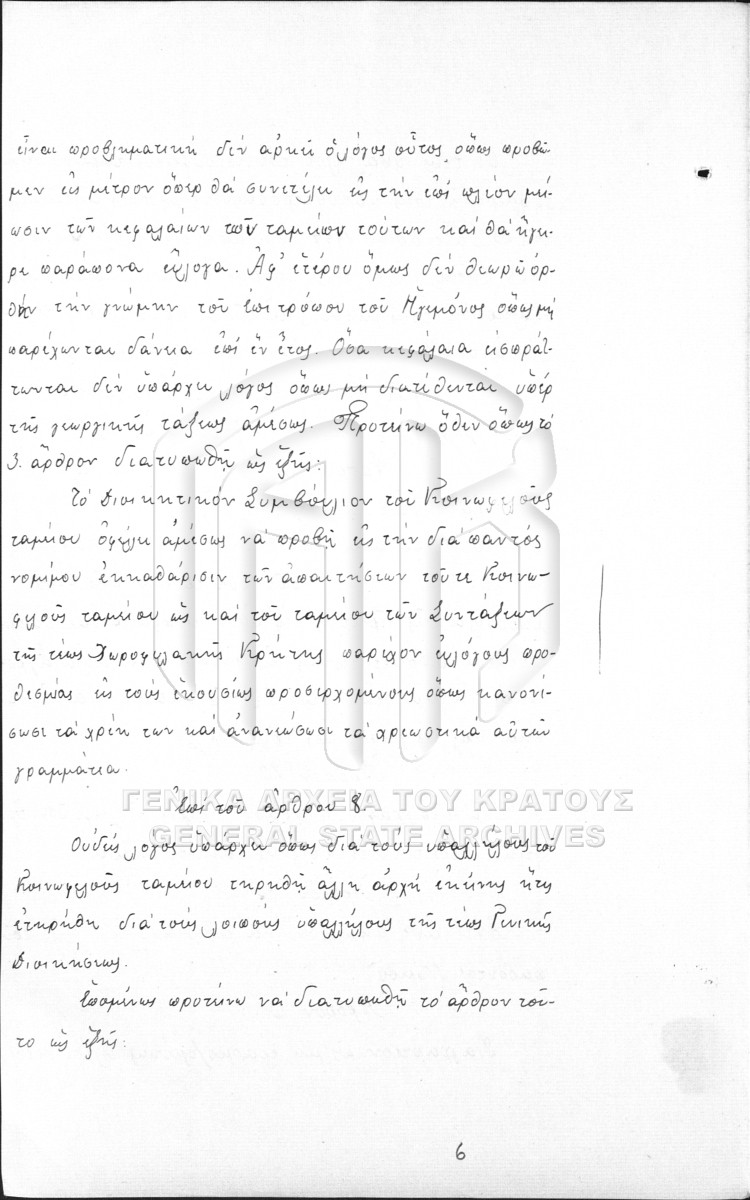 εἶναι προβληματικὴ δὲν ἀρκεῖ ὁ λόγος οὗτος ὅπως προβῶ-
μεν εἰς μέτρον ὅπερ θὰ συνετέλει εἰς τὴν ἐπὶ πλέον μεί-
ωσιν τῶν κεφαλαίων τῶν ταμείων τούτων καὶ θὰ ἤγει-
ρε παράπονα εὔλογα. Ἀφ' ἑτέρου ὅμως δὲν θεωρῶ ὀρ-
θὴν τὴν γνώμην τοῦ ἐπιτρόπου τοῦ Ἡγεμόνος ὅπως μὴ
παρέχωνται δάνεια ἐπὶ ἓν ἔτος. Ὅσα κεφάλαια εἰσπράτ-
τωνται δὲν ὑπάρχει λόγος ὅπως μὴ διατίθενται ὑπὲρ
τῆς γεωργικῆς τάξεως ἀμέσως. Προτείνω ὅθεν ὅπως τὸ
3. ἄρθρον διατυπωθῇ ὡς ἑξῆς:
Τὸ Διοικητικὸν Συμβούλιον τοῦ Κοινωφελοῦς
ταμείου ὀφείλει ἀμέσως νὰ προβῇ εἰς τὴν διὰ παντὸς
νομίμου ἐκκαθάρισιν τῶν ἀπαιτήσεων τοῦ τε Κοινω-
φελοῦς ταμείου ὡς καὶ τοῦ ταμείου τῶν Συντάξεων
τῆς τέως Χωροφυλακῆς Κρήτης παρέχον εὐλόγους προ-
θεσμίας εἰς τοὺς ἑκουσίως προσερχομένους ὅπως κανονί-
σωσι τὰ χρέη των καὶ ἀνανεώσωσι τὰ χρεωστικὰ αὐτῶν
γραμμάτια.
Ἐπὶ τοῦ ἄρθρου 8.
Οὐδεὶς λόγος ὑπάρχει ὅπως διὰ τοὺς ὑπαλλήλους τοῦ
Κοινωφελοῦς ταμείου τηρηθῇ ἄλλη ἀρχὴ ἐκείνης ἥτις
ἐτηρήθη διὰ τοὺς λοιποὺς ὑπαλλήλους τῆς τέως Γενικῆς
Διοικήσεως.
Ἑπομένως προτείνω νὰ διατυπωθῇ τὸ ἄρθρον τοῦ-
το ὡς ἑξῆς:
ΓΕΝΙΚΑ ΑΡΧΕΙΑ ΤΟΥ ΚΡΑΤΟΥΣ
GENERAL STATE ARCHIVES
6